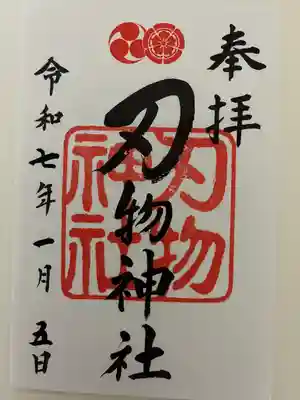 奉拝
刃物神社
刃物
神社
令和七年一月五日